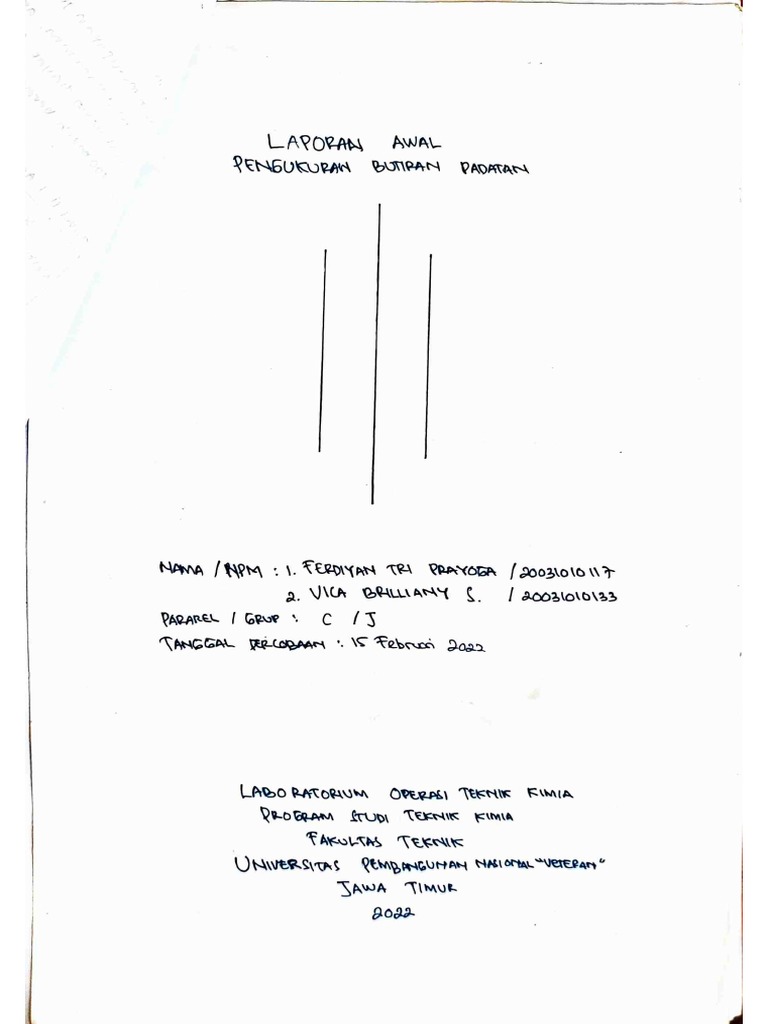 LAPORAN AWAL
PENGUKURAN BUTIRAN PADATAN
NAMA / NPM : 1. FERDIYAN TRI PRAYOGA / 20031010117
2. VICA BRILLIANY S. / 20031010133
PARAREL / GRUP : C / J
TANGGAL PERCOBAAN : 15 Februari 2022
LABORATORIUM OPERASI TEKNIK KIMIA
PROGRAM STUDI TEKNIK KIMIA
FAKULTAS TEKNIK
UNIVERSITAS PEMBANGUNAN NASIONAL "VETERAN"
JAWA TIMUR
2022